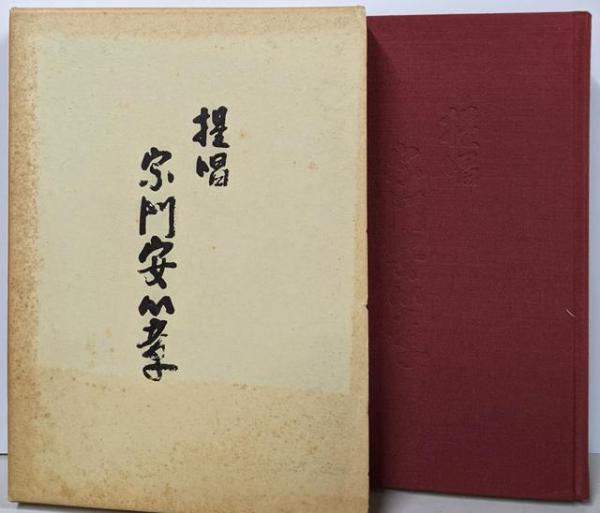 提唱
宗門安心章
提唱
宗門安心章